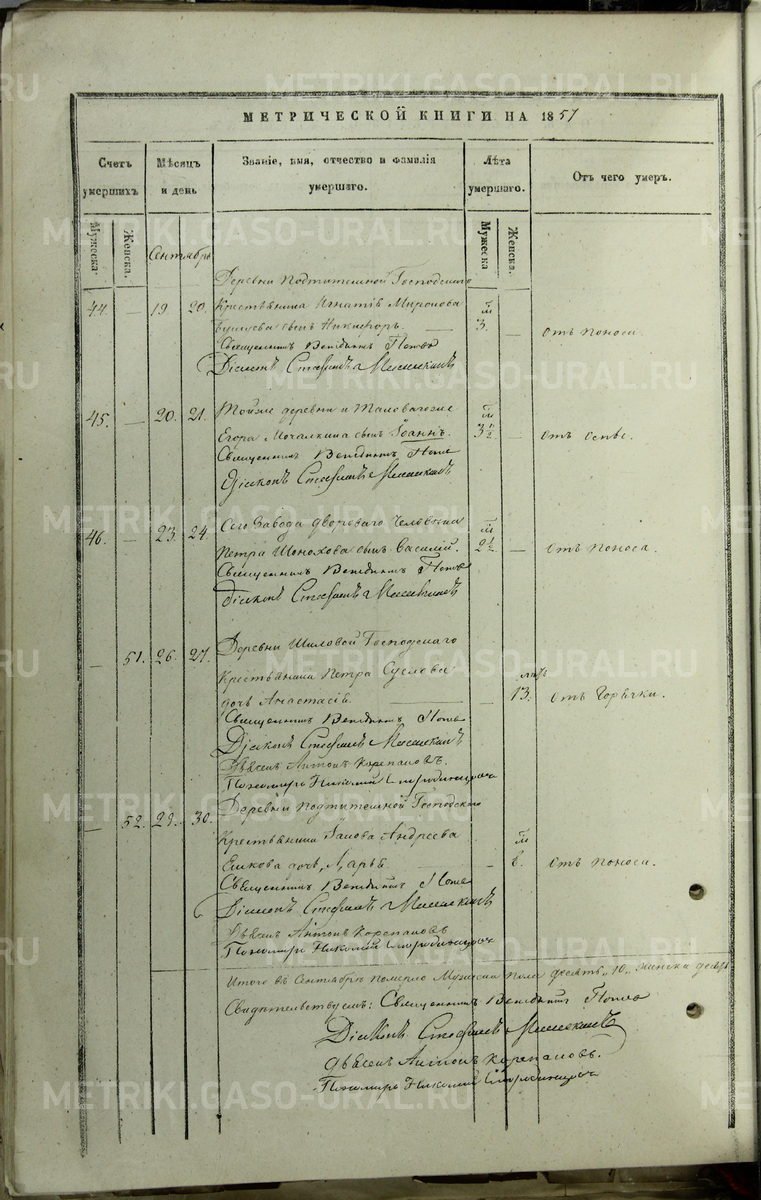 МЕТРИЧЕСКОЙ КНИГИ НА 1857
Счетъ умершихъ
Мѣсяцъ и день
Званіе, имя, отчество и фамилія умершаго.
Лѣта умершаго.
Отъ чего умеръ.
Мужеска.
Женска.
Мужеска
Женска.
Сентябрь
Деревни Подтитешной Господскаго
44. — 19 20. Крестьянина Игнатія Миронова м 3. — отъ поноса.
сынъ Никифоръ. —
Священникъ Венедиктъ Поповъ
Діаконъ Стефанъ
45. — 20. 21. Тойже деревни и
Егора Мочалкина сынъ Іоаннъ. м 3½ — отъ оспы.
Священникъ Венедиктъ Поповъ
Діаконъ Стефанъ
46. — 23. 24. Сего Завода двороваго человѣка м
Петра сынъ Василій. 2½ — отъ поноса.
Священникъ Венедиктъ Поповъ
Діаконъ Стефанъ
— 51. 26. 27. Деревни Шиловой Господскаго
Крестьянина Петра Суслова лѣтъ
дочь Анастасія — 13. отъ Горячки.
Священникъ Венедиктъ Поповъ
Діаконъ Стефанъ
Дьячекъ Антонъ Корепановъ.
Пономарь Николай Смородинцовъ
— 52. 29. 30. Деревни Подтитешной Господскаго
Крестьянина Андреева м
Ешкова дочь Дарья — 6. отъ поноса.
Священникъ Венедиктъ Поповъ
Діаконъ Стефанъ
Дьячекъ Антонъ Корепановъ
Пономарь Николай Смородинцовъ
Итого въ Сентябрѣ померло Мужеска пола десять „10„ женска
Свидѣтельствуемъ: Священникъ Венедиктъ Поповъ
Діаконъ Стефанъ
Дьячекъ Антонъ Корепановъ.
Пономарь Николай Смородинцовъ
METRIKI.GASO-URAL.RU